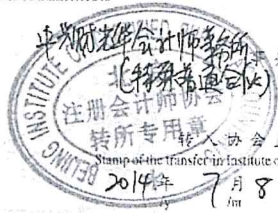 中兴财光华会计师事务所
(特殊普通合伙)
BEIJING INSTITUTE OF
北
注册会计师协会
转所专用章
转入协会
Stamp of the transfer-in Institute o
2014年 7月 8
/y /m